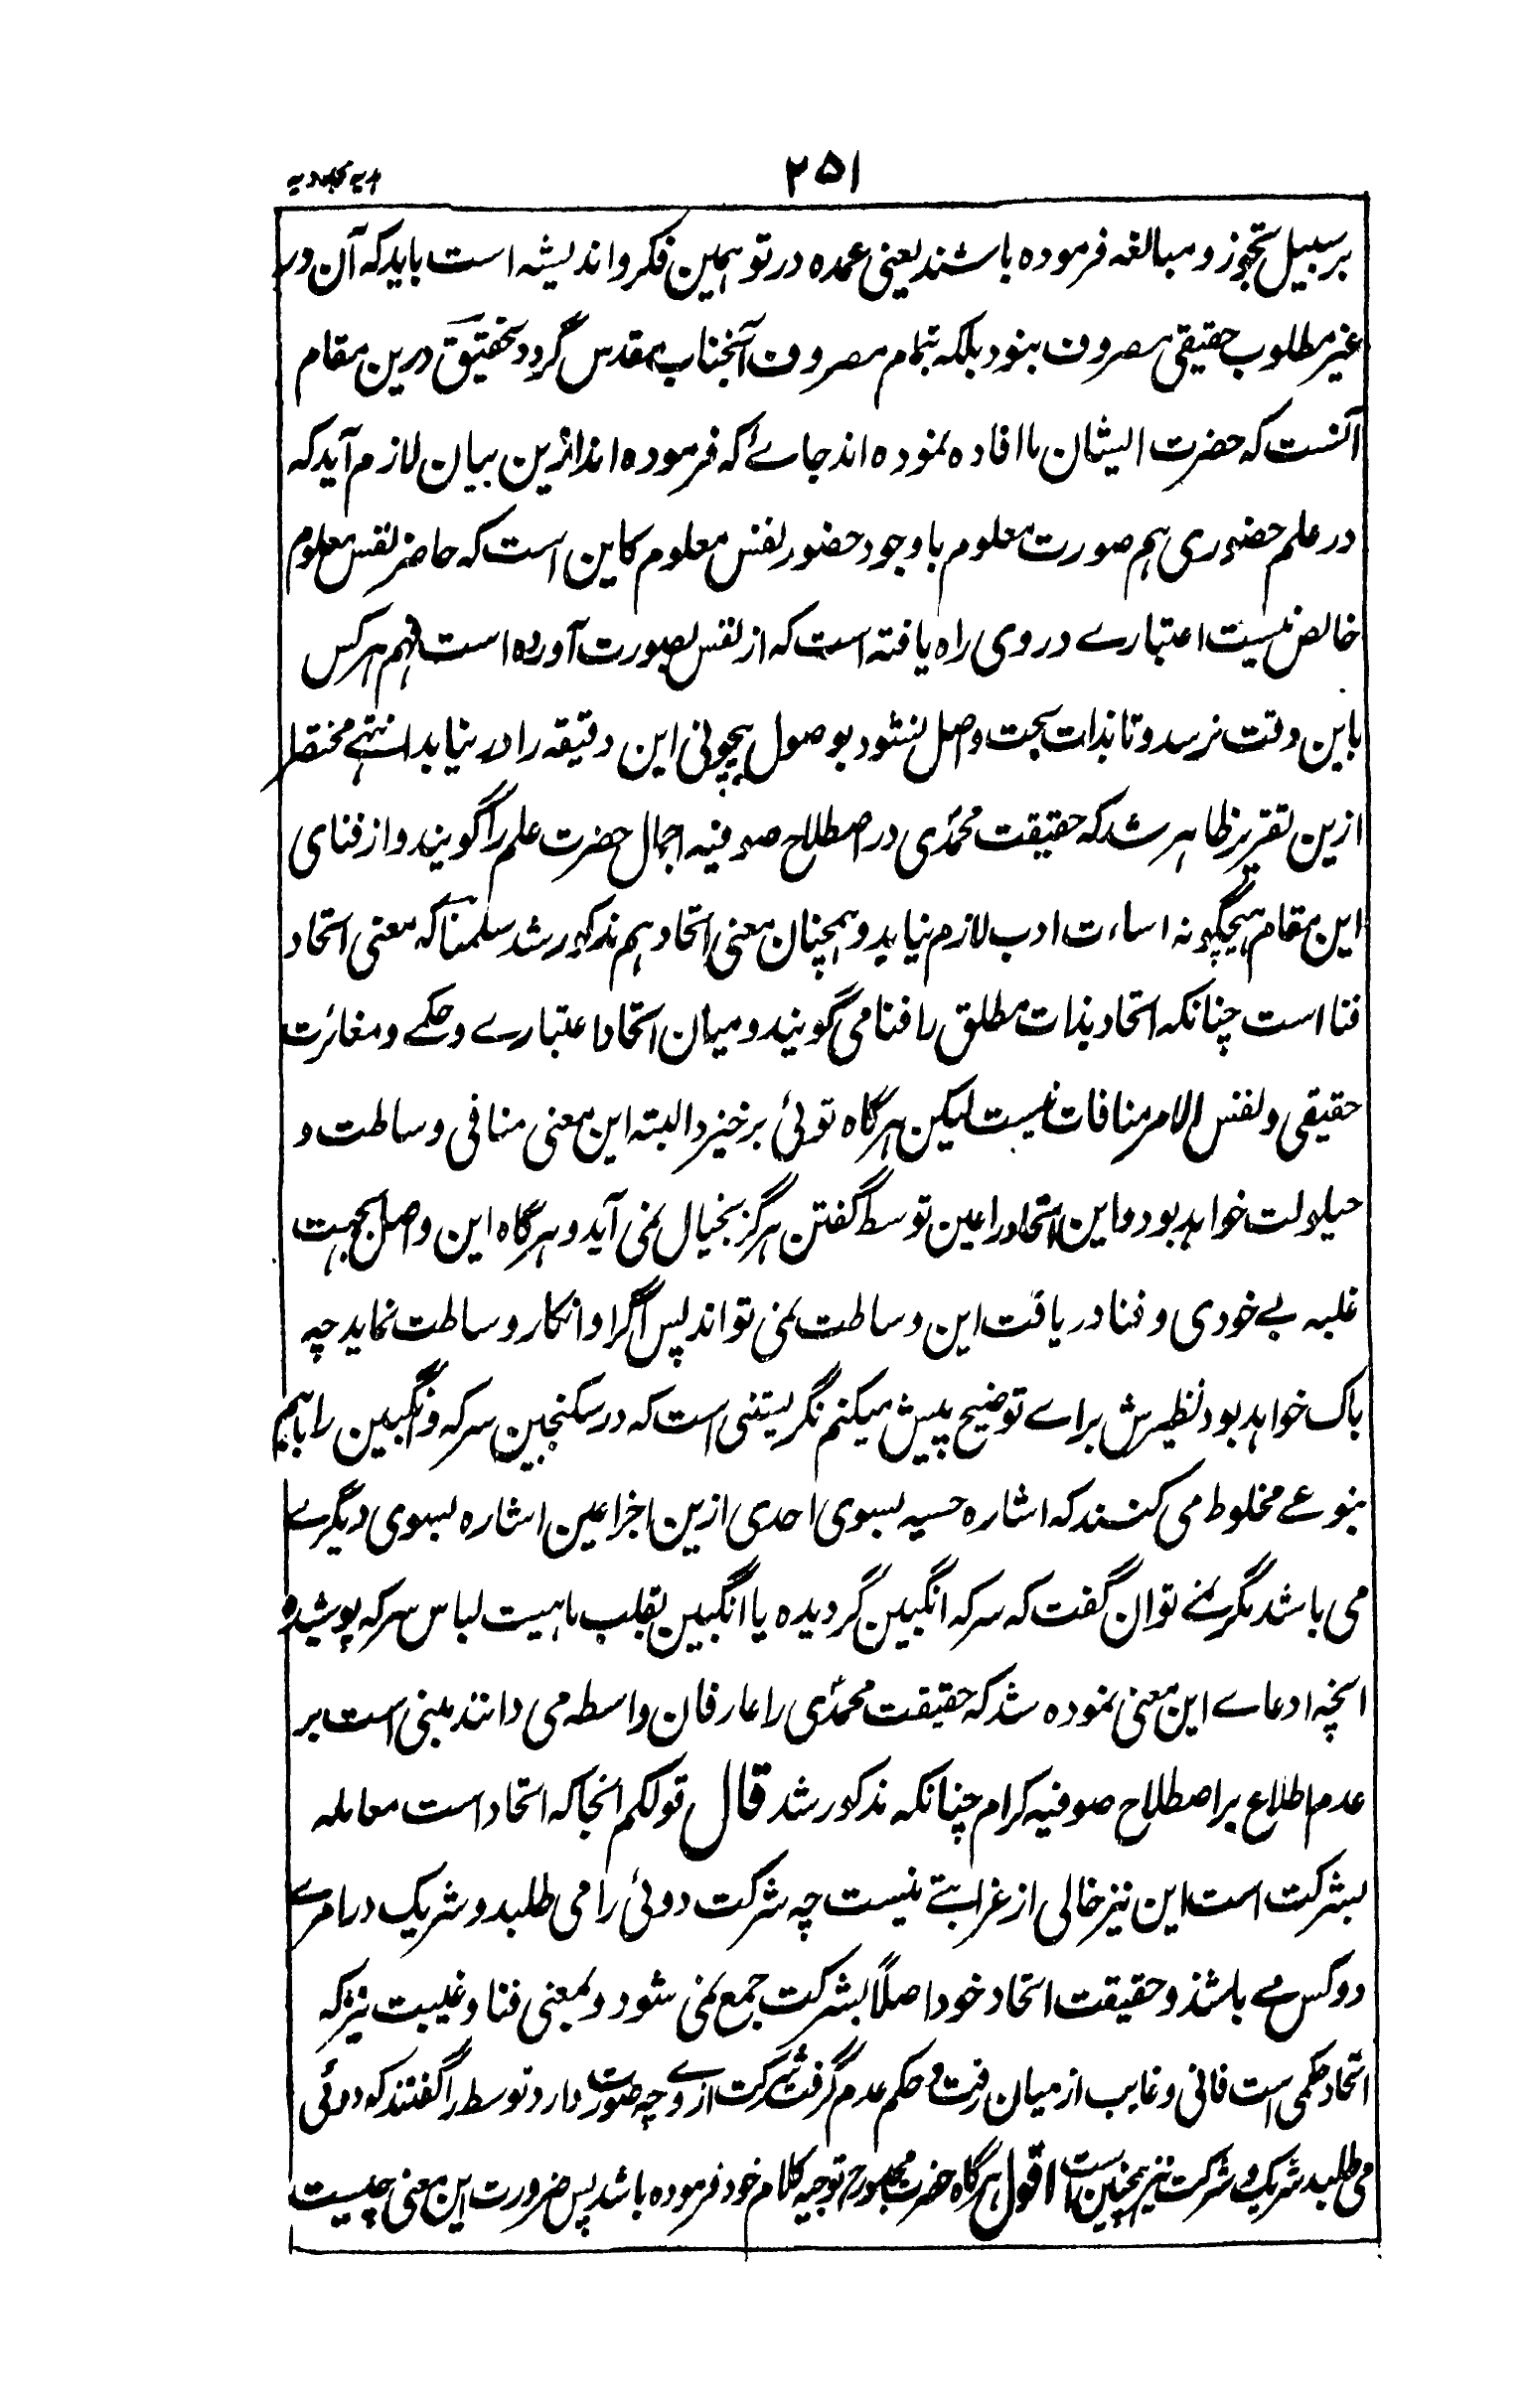 ۲۵۱
ہدیہ مجددیہ
برسبیل تجوز و مبالغہ فرمودہ باشند یعنی عمدہ در تو ہمین فکر و اندیشہ است باید کہ آن در
غیر مطلوب حقیقی مصروف نبود بلکہ بتمام مصروف آنجناب مقدس گردد تحقیق درین مقام
آنست کہ حضرت ایشان ما افادہ نمودہ اند جائے کہ فرمودہ اند ازین بیان لازم آید کہ
در علم حضوری ہم صورت معلوم با وجود حضور نفس معلوم کاین است کہ حاضر نفس معلوم
خالص نیست اعتبارے در وی راہ یافتہ است کہ از نفس بصورت آوردہ است فہم ہر کس
باین دقت نرسد و تا بذات بحت واصل نشود بوصول بیچونی این دقیقہ را در نیابد انتہے مختصرا
ازین تقریر ظاہر شد کہ حقیقت محمدی در اصطلاح صوفیہ اجمال حضرت علم را گویند و از فنای
این مقام ہیچگونہ اساءت ادب لازم نیاید و ہمچنان معنی اتحاد ہم مذکور شد سلمنا کہ معنی اتحاد
فنا است چنانکہ اتحاد بذات مطلق را فنا می گویند و میان اتحاد اعتبارے و حکمے و مغائرت
حقیقی و نفس الامر منافات نیست لیکن ہرگاہ توئی برخیزد البتہ این معنی منافی وساطت و
حیلولت خواہد بود و این اتحاد را عین توسط گفتن ہرگز بخیال نمی آید و ہرگاہ این واصل بجہت
غلبہ بے خودی و فنا دریافت این وساطت نمی تواند پس اگر او انکار وساطت نماید چہ
باک خواہد بود نظیرش براے توضیح پیش میکنم نگریستنی است کہ در سکنجبین سرکہ و انگبین را باہم
بنوعے مخلوط می کنند کہ اشارہ حسیہ بسوی احدی ازین اجزا عین اشارہ بسوی دیگرے
می باشد مگر نمے توان گفت کہ سرکہ انگبین گردیدہ یا انگبین بقلب ماہیت لباس سرکہ پوشیدہ
انچہ ادعاے این معنی نمودہ شد کہ حقیقت محمدی را عارفان واسطہ می دانند مبنی است بر
عدم اطلاع بر اصطلاح صوفیہ کرام چنانکہ مذکور شد قال قولکم انجا کہ اتحاد است معاملہ
بشرکت است این نیز خالی از غرابتے نیست چہ شرکت دوئی را می طلبد و شریک در امرے
دو کس مے باشند و حقیقت اتحاد خود اصلاً بشرکت جمع نمی شود و بمعنی فنا و غیبت نیز کہ
اتحاد حکمی است فانی و غایب از میان رفت و حکم عدم گرفت شرکت ازوے چہ صورت دارد توسط را گفتند کہ دوئی
می طلبد شریک و شرکت نیز ہمچنین است اقول ہرگاہ حضرت توجیہ کلام خود فرمودہ باشد پس ضرورت این معنی چیست